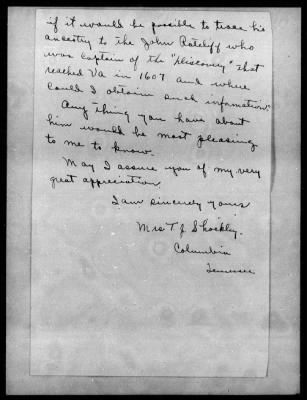 if it would be possible to trace his
ancestry to the John Ratcliff who
was captain of the "Discovery" that
reached Va in 1607 and where
could I obtain such information."
Any thing you have about
him would be most pleasing
to me to know.
May I assure you of my very
great appreciation
I am sincerely yours
Mrs T J Shockley.
Columbia
Tennessee